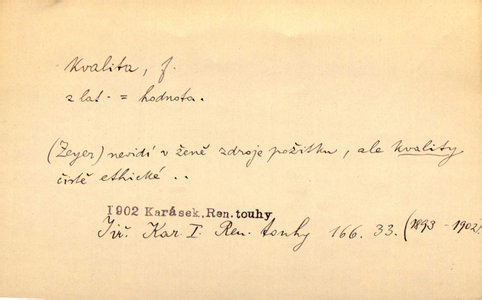 Kvalita, f.
z lat. = hodnota.
(Zeyer) nevidí v ženě zdroje požitku, ale kvality
čistě ethické ..
1902 Karásek.Ren.touhy
Jiř. Kar. I. Ren. touhy 166. 33. (1893 - 1902).